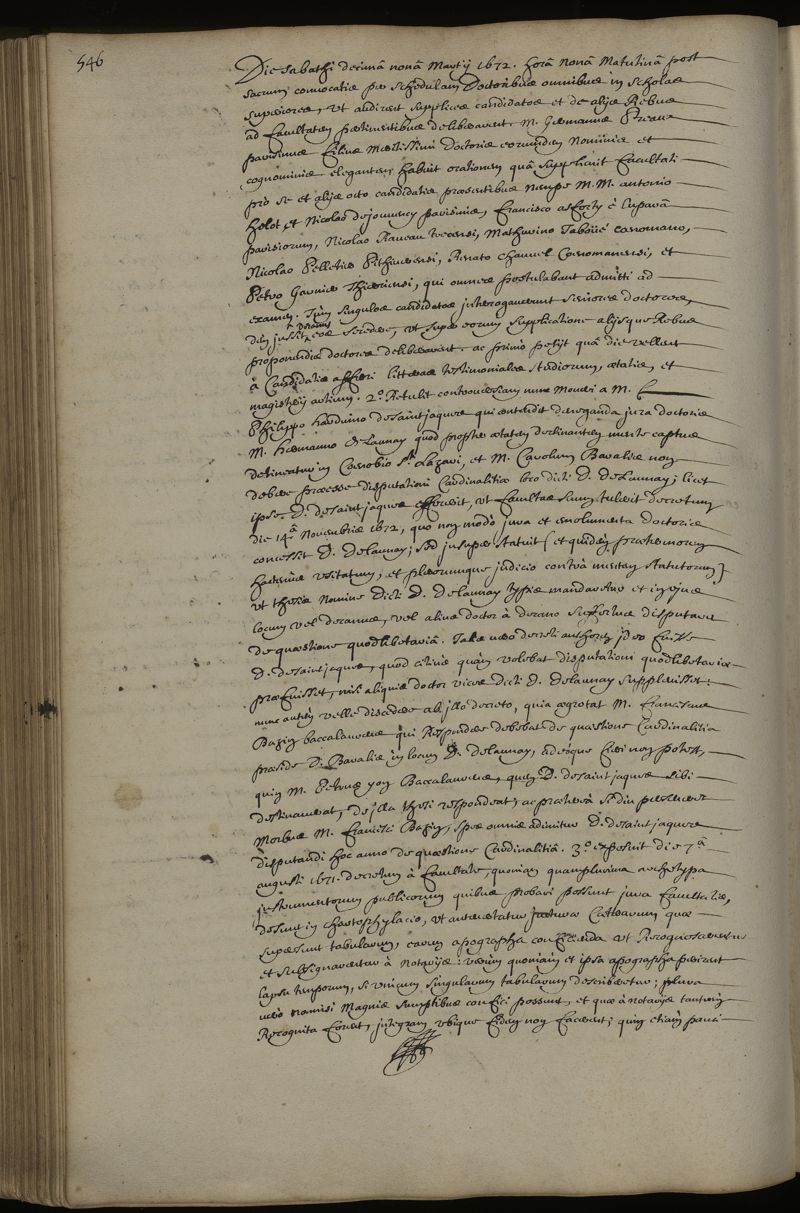 546
Die sabathi decimâ nonâ Martij 1672. horâ nonâ Matutinâ post
sacrum convocatis per schedulam Doctoribus omnibus in scholas
superiores, ut audirent supplices candidatos et de alijs Rebus
ad facultatem pertinentibus deliberarent. M. Germanus Preaux
parisinus filius meritissimi doctoris eorumdem Nominis et
cognominis elegantem habuit orationem quâ supplicavit facultati
pro se et alijs octo candidatis præsentibus nempe M.M. antonio
helot et Nicolao dejouvency parisinis, francisco è Lupavâ
parisiorum, Nicolao Raveau trecensi, Mathurino Taboüé cenomano,
Nicolao Pelletier Pithuerensi, Renato chauvel Cenomanensi, et
Petro Garnier, qui omnes postulabant admitti ad
examen. Tùm singulos candidatos interrogaverunt seniores doctores,
dein jussit Decanus eos secedere, ut super eorum supplicatione alijsque Rebus
proponendis doctores deliberarent. ac primò petijt quâ die vellent
à Candidatis afferri litteras testimoniales studiorum, ætatis, et
magisterij artium. 2.º Retulit controversiam nunc moveri a M.
Philippo harduino desaintjacques qui contendit deneganda jura doctoris
M. Hermanno DeLaunay quod propter ætatem declinantem mente captus
detineatur in Cœnobio Sti. Lazari, et M. Carolum Bavalis non
debere præesse disputationi Cardinalitiæ loco dicti D. DeLaunay; licet
ipse D. desaintjacques effecerit, ut facultas suum tulerit decretum
die 14â Novembris 1672, quo non modò jura et emolumenta doctoris
concessit D. DeLaunay; sed insuper statuit (et quidem præter morem
hactenus usitatum, et plerorumque judicio contrà mentem statutorum)
ut thesis Nomine dicti D. DeLaunay typis mandaretur et in ejus
locum vel decanus, vel alius doctor à decano suffectus disputaret
de quæstione quodlibetariâ. Talis verò decreti author ideò fuisse
D. desaintjacques, quod citiùs quàm volebat disputationi quodlibetariæ
præfuisset, nisi aliquis doctor vices dicti D. DeLaunay supplevisset:
nunc autem velle discedere ab illo decreto, quia ægrotat M. franciscus
Bazin baccalaureus qui Respondere debebat de quæstione Cardinalitia
præside D. Bavalis in locum D. deLaunay, adeòque fieri non potest,
quin M. Petrus yon Baccalaureus, quem D. desaintjacques sibi
destinaverat, de illa thesi respondeat; ac præterea si diu perseveret
Morbus M. francisci Bazin, spes omnis adimitur D. desaintjacques
disputandi hoc anno de quæstione Cardinalitiâ. 3.º exposuit die 7â
augusti 1671. decretum à facultate, quoniam quamplurima archetypa
instrumentorum publicorum quibus probari possunt jura facultatis,
desunt in chartophylacio, ut antevertatur jactura cæterarum quæ
supersunt tabularum, earum apographa conficienda ut Recognoscerentur
et subsignarentur à Notarijs: verùm quoniam et ipsa apographa pereunt
lapsu temporum, si unicum singularum tabularum describeretur; plura
verò nonnisi magnis sumptibus confici possunt, et quæ à notarijs tantùm
Recognita forent, integram ubique fidem non facerent; quin etiam pauci